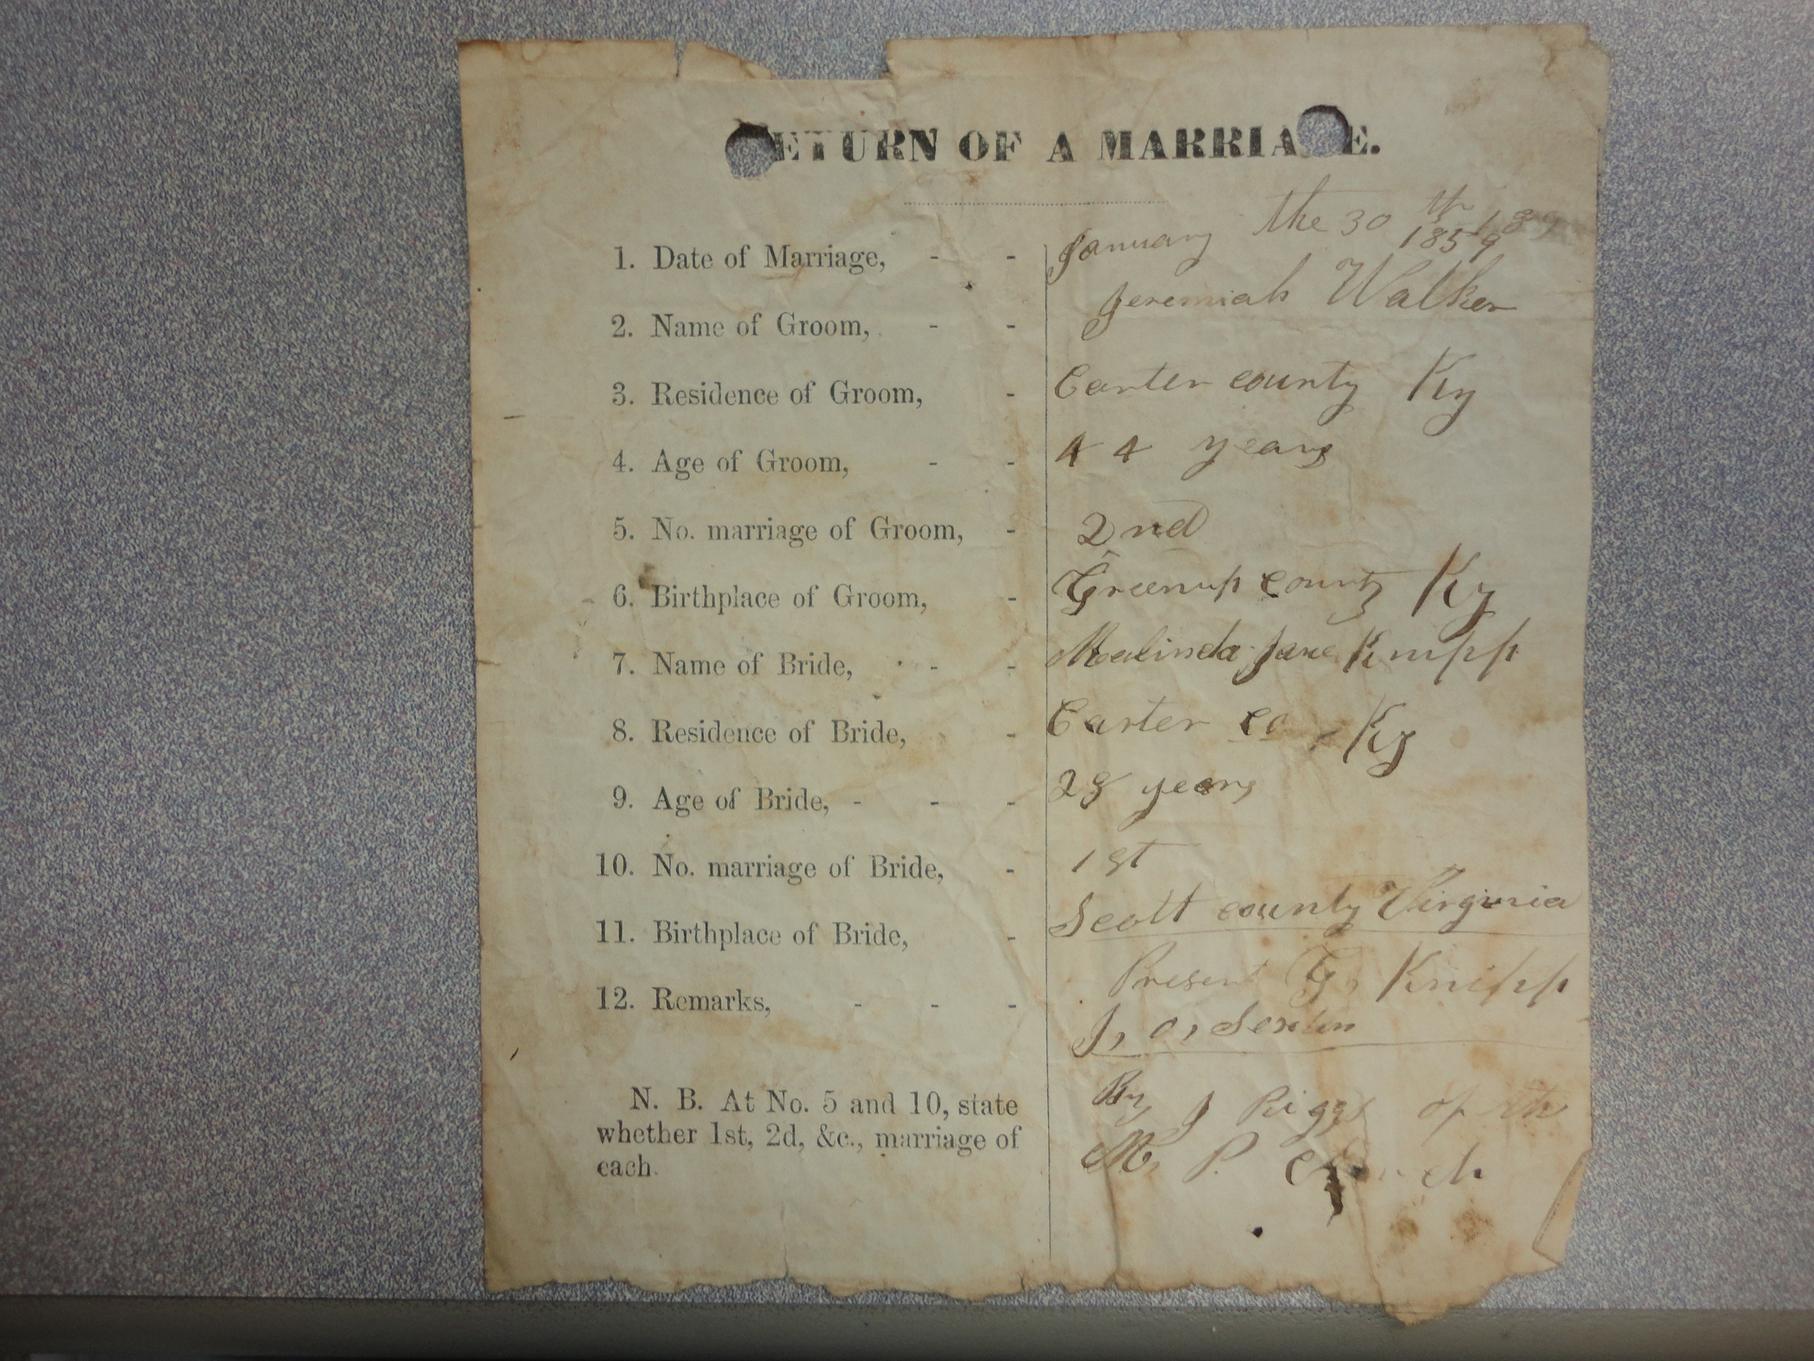 ETURN OF A MARRIA E.
1. Date of Marriage, - - January the 30th 1859
2. Name of Groom, - - Jeremiah Walker
3. Residence of Groom, - Carter county Ky
4. Age of Groom, - - 44 years
5. No. marriage of Groom, - 2nd
6. Birthplace of Groom, - Greenup county Ky
7. Name of Bride, - - Malinda Jane Knipp
8. Residence of Bride, - Carter co Ky
9. Age of Bride, - - - 28 years
10. No. marriage of Bride, - 1st
11. Birthplace of Bride, - Scott county Virginia
12. Remarks, - - - Present G. Knipp
J, O, Sexton
N. B. At No. 5 and 10, state
whether 1st, 2d, &c., marriage of
each.
By J Riggs of the
M. P. Church